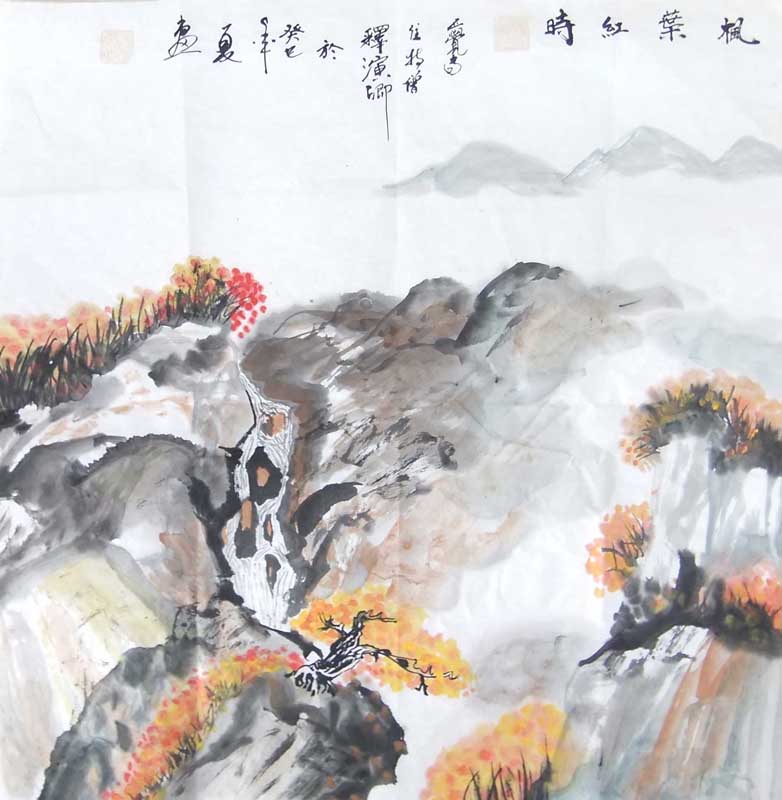 楓葉紅時
住持僧
釋演卿
於
癸巳
年
夏
畫